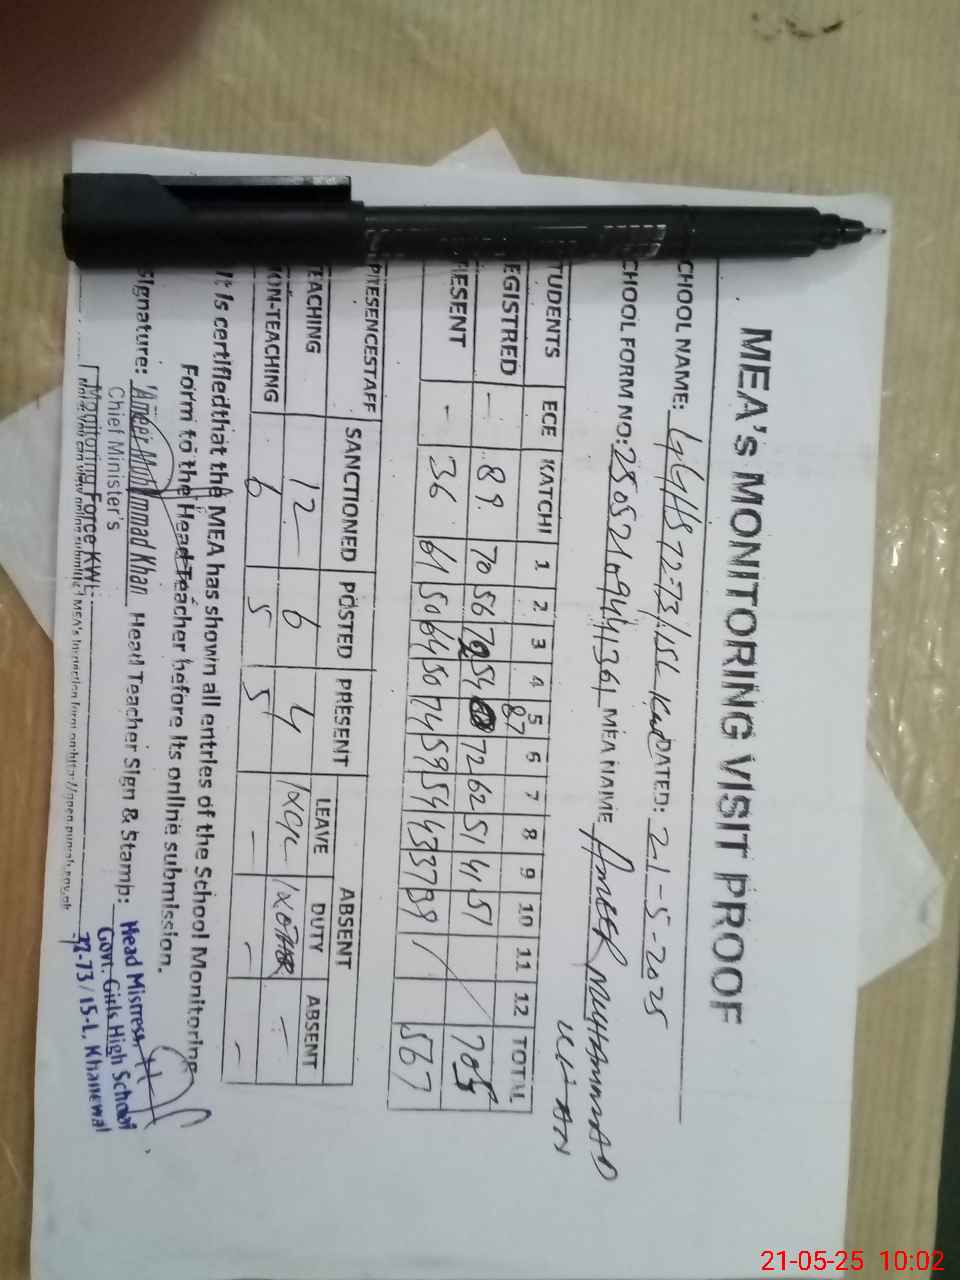 MEA's MONITORING VISIT PROOF
CHOOL NAME: GGHS 72-73/15L Kwl DATED: 21-5-2025
CHOOL FORM NO: 25052109441361 MEA NAME AMEER MUHAMMAD
KHAN
TUDENTS ECE KATCHI 1 2 3 4 5 6 7 8 9 10 11 12 TOTAL
EGISTRED - 89 70 56 72 54 87 72 62 51 41 51 705
ESENT - 36 61 50 64 50 74 59 54 43 37 39 567
PRESENCESTAFF SANCTIONED POSTED PRESENT ABSENT
LEAVE DUTY ABSENT
TEACHING 12 6 4 1xcL 1xOTHER -
ON-TEACHING 6 5 5 - - -
It is certifiedthat the MEA has shown all entries of the School Monitoring
Form to the Head Teacher before its online submission.
signature: Ameer Muhammad Khan Head Teacher Sign & Stamp:
Chief Minister's
Monitoring Force KWL
Note: You can view online submitted MEA's Inspection form on http://open.punjab.gov.pk
Head Misrress
Govt. Girls High School
72-73/15-L, Khanewal
21-05-25 10:02